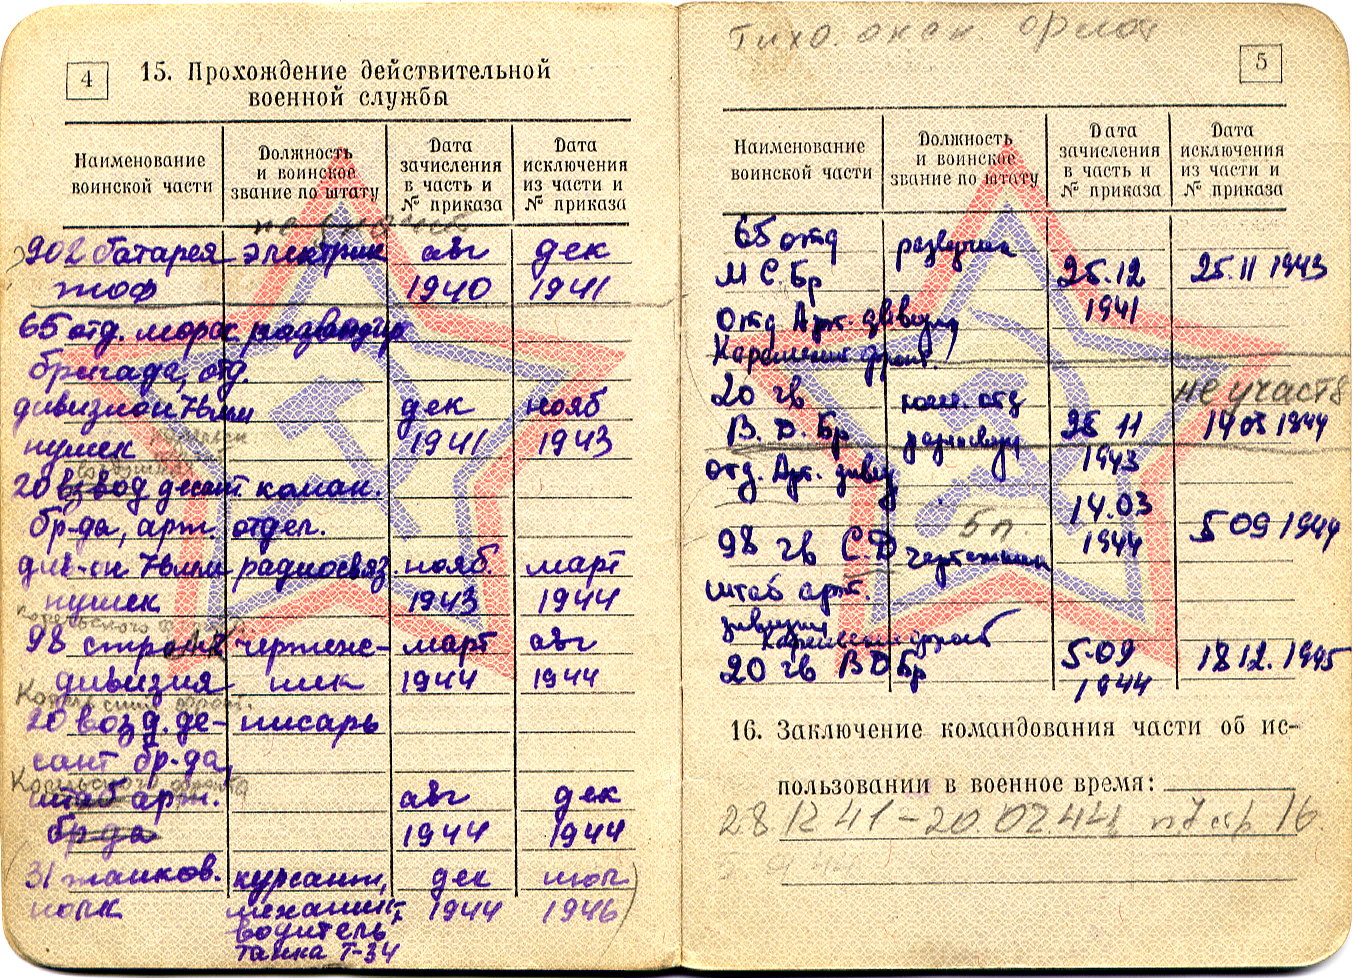 4
15. Прохождение действительной
военной службы
Наименование
воинской части
Должность
и воинское
звание по штату
Дата
зачисления
в часть и
№ приказа
Дата
исключения
из части и
№ приказа
902 батарея электрик авг дек
тоф 1940 1941
65 отд. морск
бригада, отд.
дивизион 76мм дек нояб
пушек 1941 1943
20 взвод десант коман.
бр-да, арт. отдел.
див-он 76мм радиосвяз. нояб март
пушек 1943 1944
98 чертеж- март авг
дивизия ник 1944 1944
20 возд. де- писарь
сант бр-да,
штаб арт. авг дек
бр-да 1944 1944
31 танков. курсант, дек
полк механик, 1944 1946
водитель
танка Т-34
Тихо. океан.
5
Наименование
воинской части
Должность
и воинское
звание по штату
Дата
зачисления
в часть и
№ приказа
Дата
исключения
из части и
№ приказа
65 отд разведчик
М С. Бр 25.12 25.11 1943
1941
Отд Арт. дивизия
фронт.
не участв
20 гв ком. отд
В. Д. Бр 25 11 1944
1943
отд. Арт. дивиз
14.03
5п. 5 09 1944
98 гв С Д чертежник 1944
штаб арт.
дивизии
Карельский фронт
20 гв В Д Бр 5-09 18 12. 1945
1944
16. Заключение командования части об ис-
пользовании в военное время:
28 12 41 – 20 02 44 16